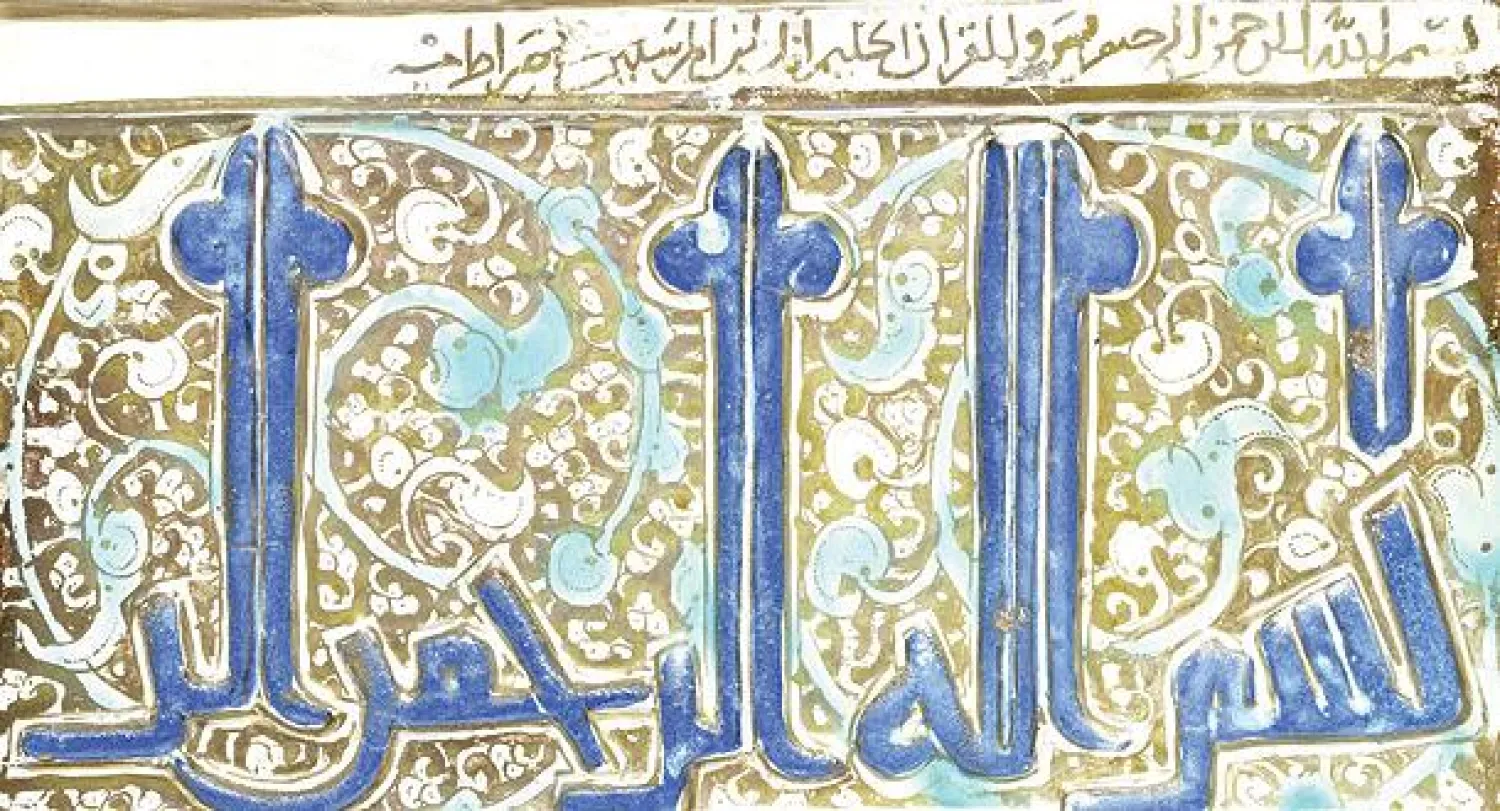 بسم الله الرحمن الرحيم يس والقران الحكيم انك لمن المرسلين صراط
بسم الله الرحمن الر